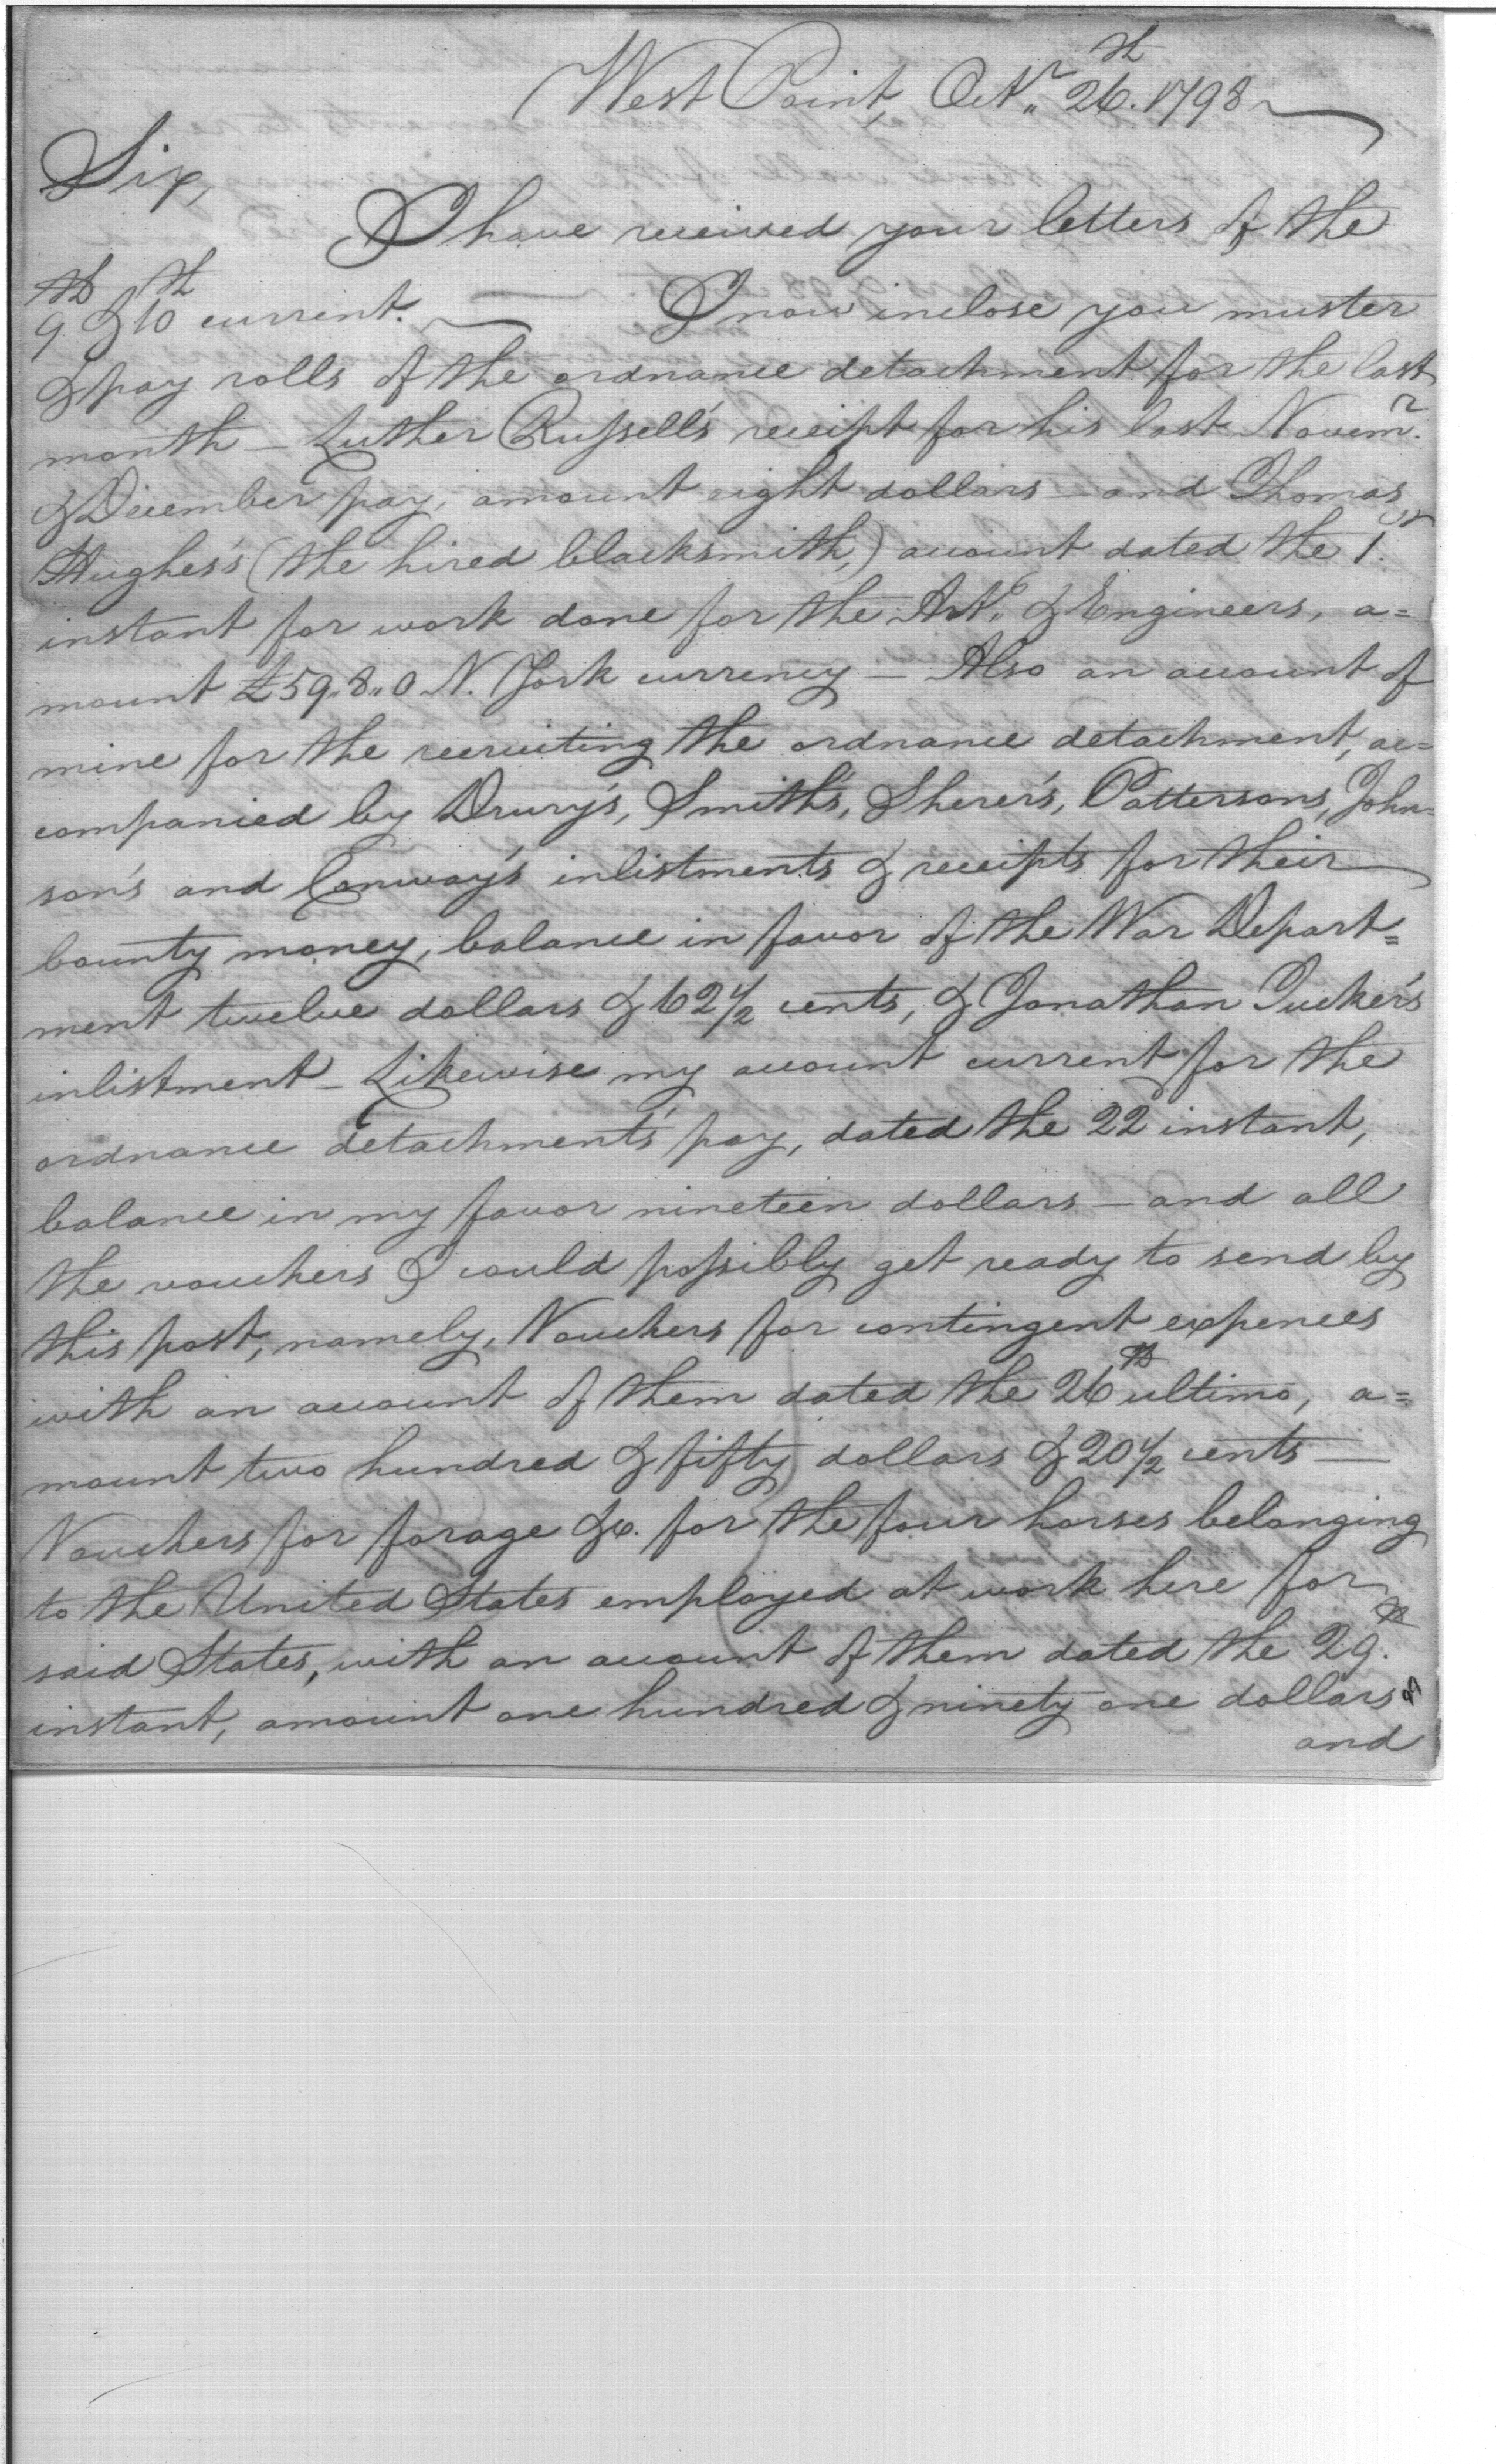 West Point, Octr. 26th. 1798
Sir,
I have received your letters of the
9th & 10th current. — I now inclose you muster
& pay rolls of the ordnance detachment for the last
month — Luther Russell's receipt for his last Novemr.
& December pay, amount eight dollars — and Thomas
Hughes's (the hired blacksmith,) account dated the 1st.
instant for work done for the Arty. & Engineers, a=
mount £59,,8,,0 N. York currency — Also an account of
mine for the recruiting the ordnance detachment, ac=
companied by Drury's, Smith's, Sherer's, Patterson's, John=
son's and Conway's inlistments & receipts for their
bounty money, balance in favor of the War Depart=
ment twelve dollars & 62 1/2 cents, & Jonathan Tucker's
inlistment — Likewise my account current for the
ordnance detachment's pay, dated the 22d instant,
balance in my favor nineteen dollars — and all
the vouchers I could possibly get ready to send by
this post, namely, Vouchers for contingent expences
with an account of them dated the 26th ultimo, a=
mount two hundred & fifty dollars & 20 1/2 cents —
Vouchers for forage &c. for the four horses belonging
to the United States employed at work here for
said States, with an account of them dated the 29th.
instant, amount one hundred & ninety one dollars
and